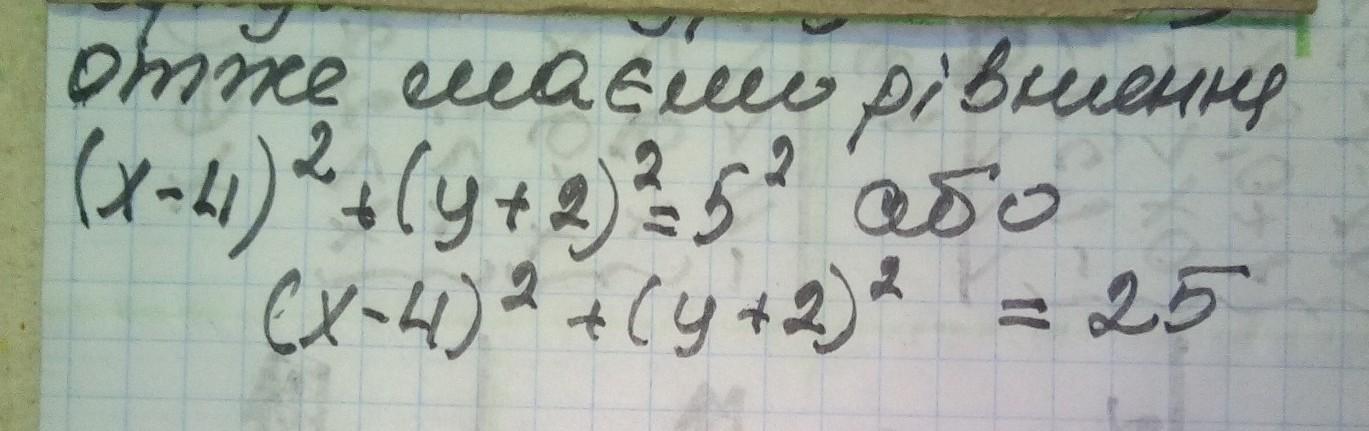 отже маємо рівняння
(x-4)² + (y+2)² = 5² або
(x-4)² + (y+2)² = 25